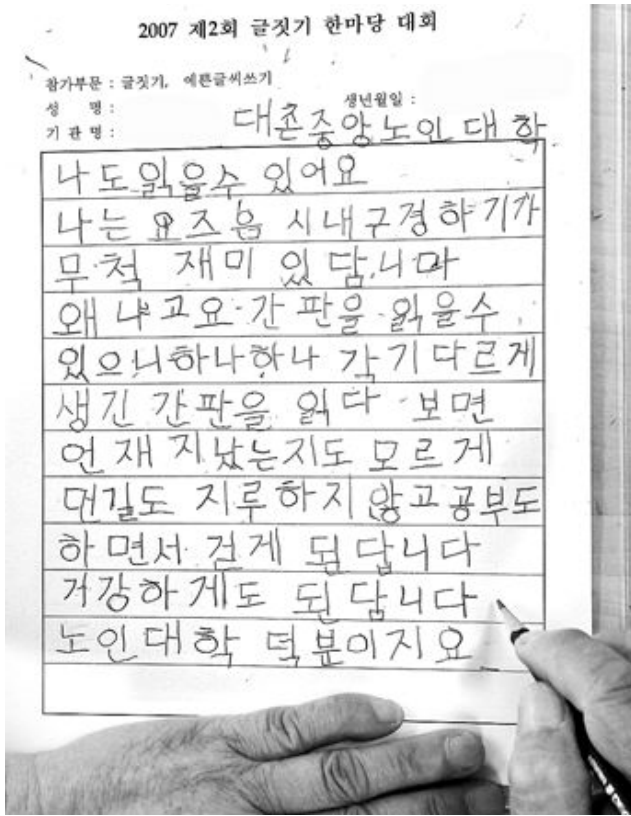 2007 제2회 글짓기 한마당 대회
참가부문 : 글짓기, 예쁜글씨쓰기
성 명 :
생년월일 :
기 관 명 :
대촌중앙노인대학
나도읽을수 있어요
나는 요즈음 시내구경하기가
무척 재미 있담니다
왜냐고요 간판을 읽을수
있으니하나하나 각기다르게
생긴 간판을 읽다 보면
언재지났는지도 모르게
먼길도 지루하지 않고공부도
하면서 걷게 됨답니다
거강하게도 된담니다
노인대학 덕분이지요